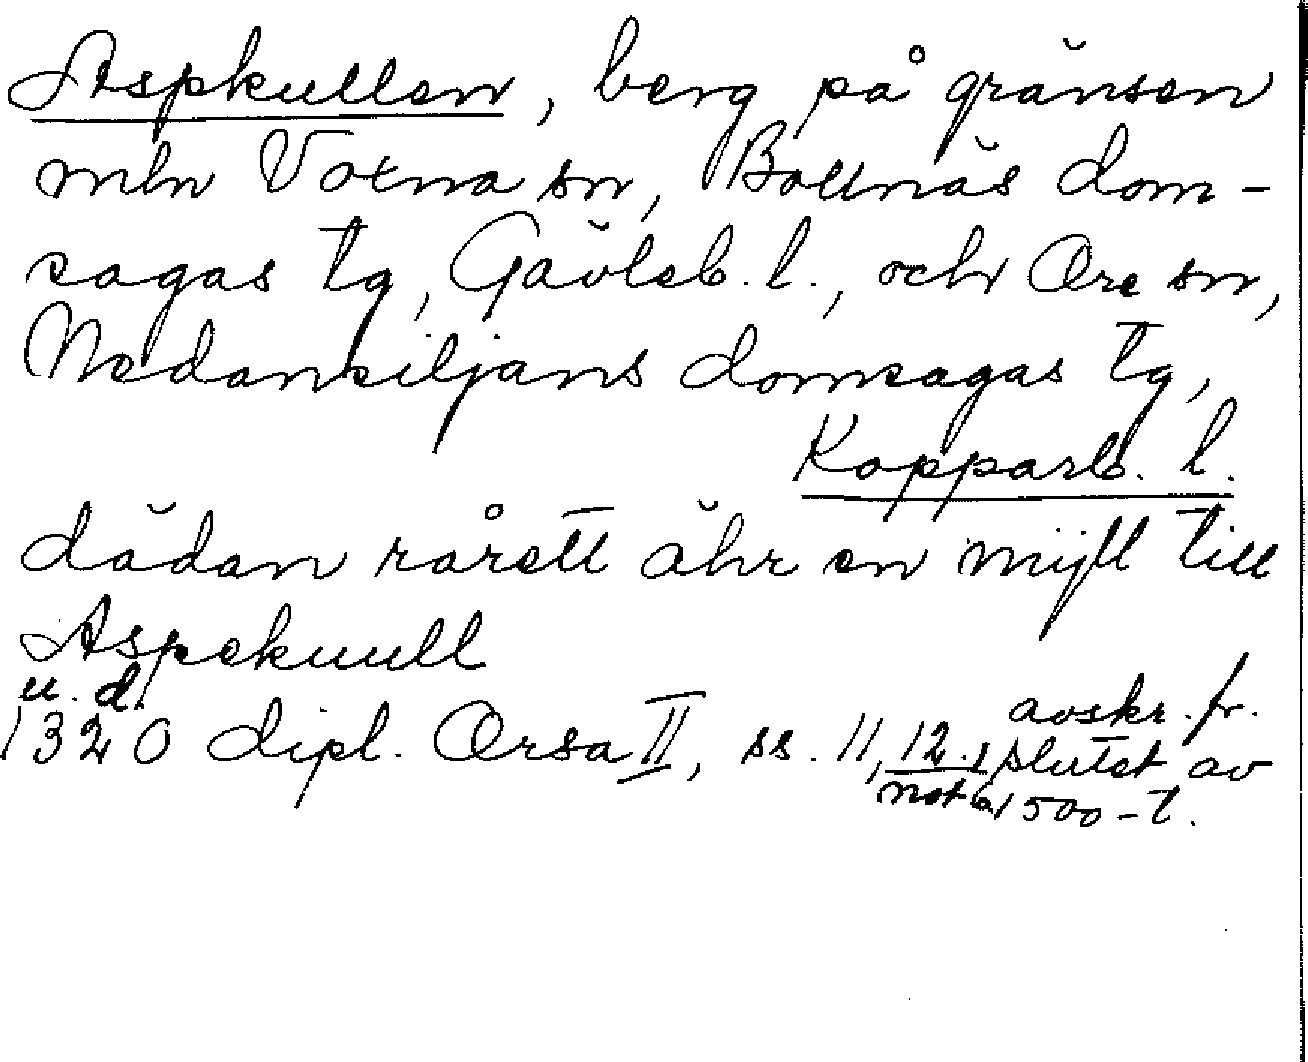 Aspkullen, berg på gränsen
mln Voxna sn, Bollnäs dom-
sagas tg, Gävleb. l., och Ore sn,
Nedansiljans domsagas tg,
Kopparb. l.
dädan rårett ähr en mijll till
Aspekuull
u. d.
1320 dipl. Orsa II, ss. 11, 12. avskr. fr.
not 6, slutet av
1500-t.